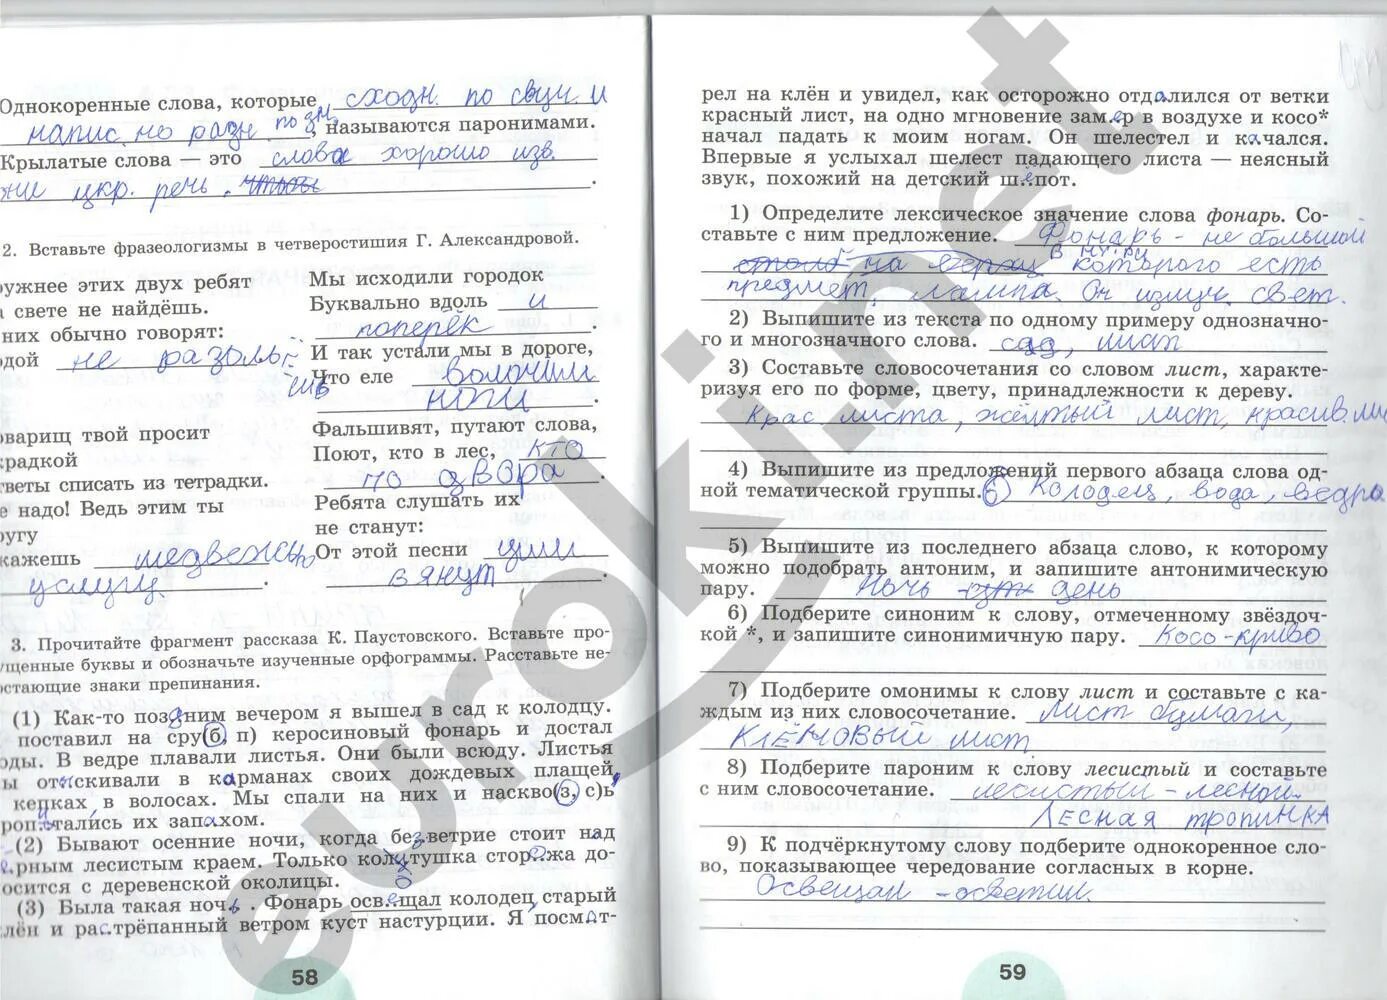 Однокоренные слова, которые сходн. по звуч. и
напис. но разн по зн. , называются паронимами.
Крылатые слова — это слова хорошо изв.
укр. речь.
2. Вставьте фразеологизмы в четверостишия Г. Александровой.
ружнее этих двух ребят
а свете не найдёшь.
них обычно говорят:
одой не разоль-
ёшь
оварищ твой просит
крадкой
тветы списать из тетрадки.
е надо! Ведь этим ты
ругу
кажешь медвежью
услугу.
Мы исходили городок
Буквально вдоль и
поперёк.
И так устали мы в дороге,
Что еле волочили
ноги.
Фальшивят, путают слова,
Поют, кто в лес, кто
по дрова.
Ребята слушать их
не станут:
От этой песни уши
вянут.
3. Прочитайте фрагмент рассказа К. Паустовского. Вставьте про-
ущенные буквы и обозначьте изученные орфограммы. Расставьте не-
остающие знаки препинания.
(1) Как-то поздним вечером я вышел в сад к колодцу.
поставил на сру(б, п) керосиновый фонарь и достал
оды. В ведре плавали листья. Они были всюду. Листья
ы отыскивали в карманах своих дождевых плащей,
кепках, в волосах. Мы спали на них и наскво(з, с)ь
ропитались их запахом.
(2) Бывают осенние ночи, когда безветрие стоит над
ёрным лесистым краем. Только колотушка сторожа до-
осится с деревенской околицы.
(3) Была такая ночь. Фонарь освещал колодец, старый
лён и растрёпанный ветром куст настурции. Я посмот-
58
рел на клён и увидел, как осторожно отдалился от ветки
красный лист, на одно мгновение замер в воздухе и косо*
начал падать к моим ногам. Он шелестел и качался.
Впервые я услыхал шелест падающего листа — неясный
звук, похожий на детский шёпот.
1) Определите лексическое значение слова фонарь. Со-
ставьте с ним предложение. Фонарь - не большой
в нутри которого есть
предмет, лампа. Он излуч. свет.
2) Выпишите из текста по одному примеру однозначно-
го и многозначного слова. сад, лист
3) Составьте словосочетания со словом лист, характе-
ризуя его по форме, цвету, принадлежности к дереву.
Крас. листа, жёлтый лист, красив. ли
4) Выпишите из предложений первого абзаца слова од-
ной тематической группы. Колодец, вода, ведра
5) Выпишите из последнего абзаца слово, к которому
можно подобрать антоним, и запишите антонимическую
пару. Ночь - день
6) Подберите синоним к слову, отмеченному звёздоч-
кой *, и запишите синонимичную пару. Косо-криво
7) Подберите омонимы к слову лист и составьте с ка-
ждым из них словосочетание. Лист бумаги,
кленовый лист
8) Подберите пароним к слову лесистый и составьте
с ним словосочетание. лесистый - лесной.
Лесная тропинка
9) К подчёркнутому слову подберите однокоренное сло-
во, показывающее чередование согласных в корне.
Освещал - осветил.
59
euroki.net